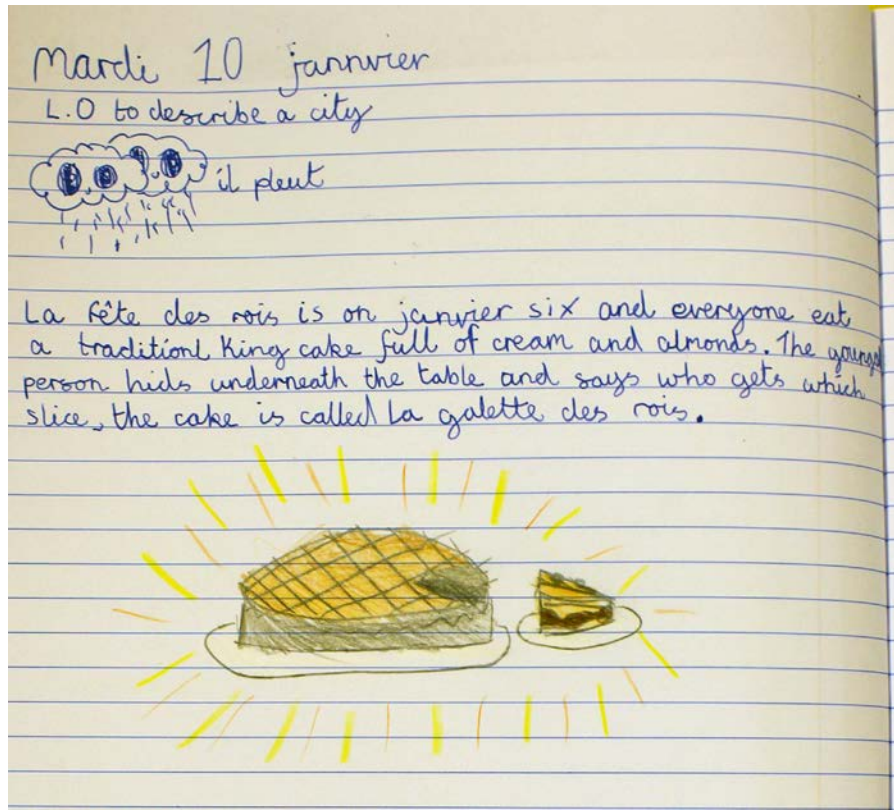 Mardi 10 jannvier
L.O to describe a city
il pleut
La fête des rois is on janvier six and everyone eat
a traditionl King cake full of cream and almonds. The youngest
person hids underneath the table and says who gets which
slice, the cake is called La galette des rois.